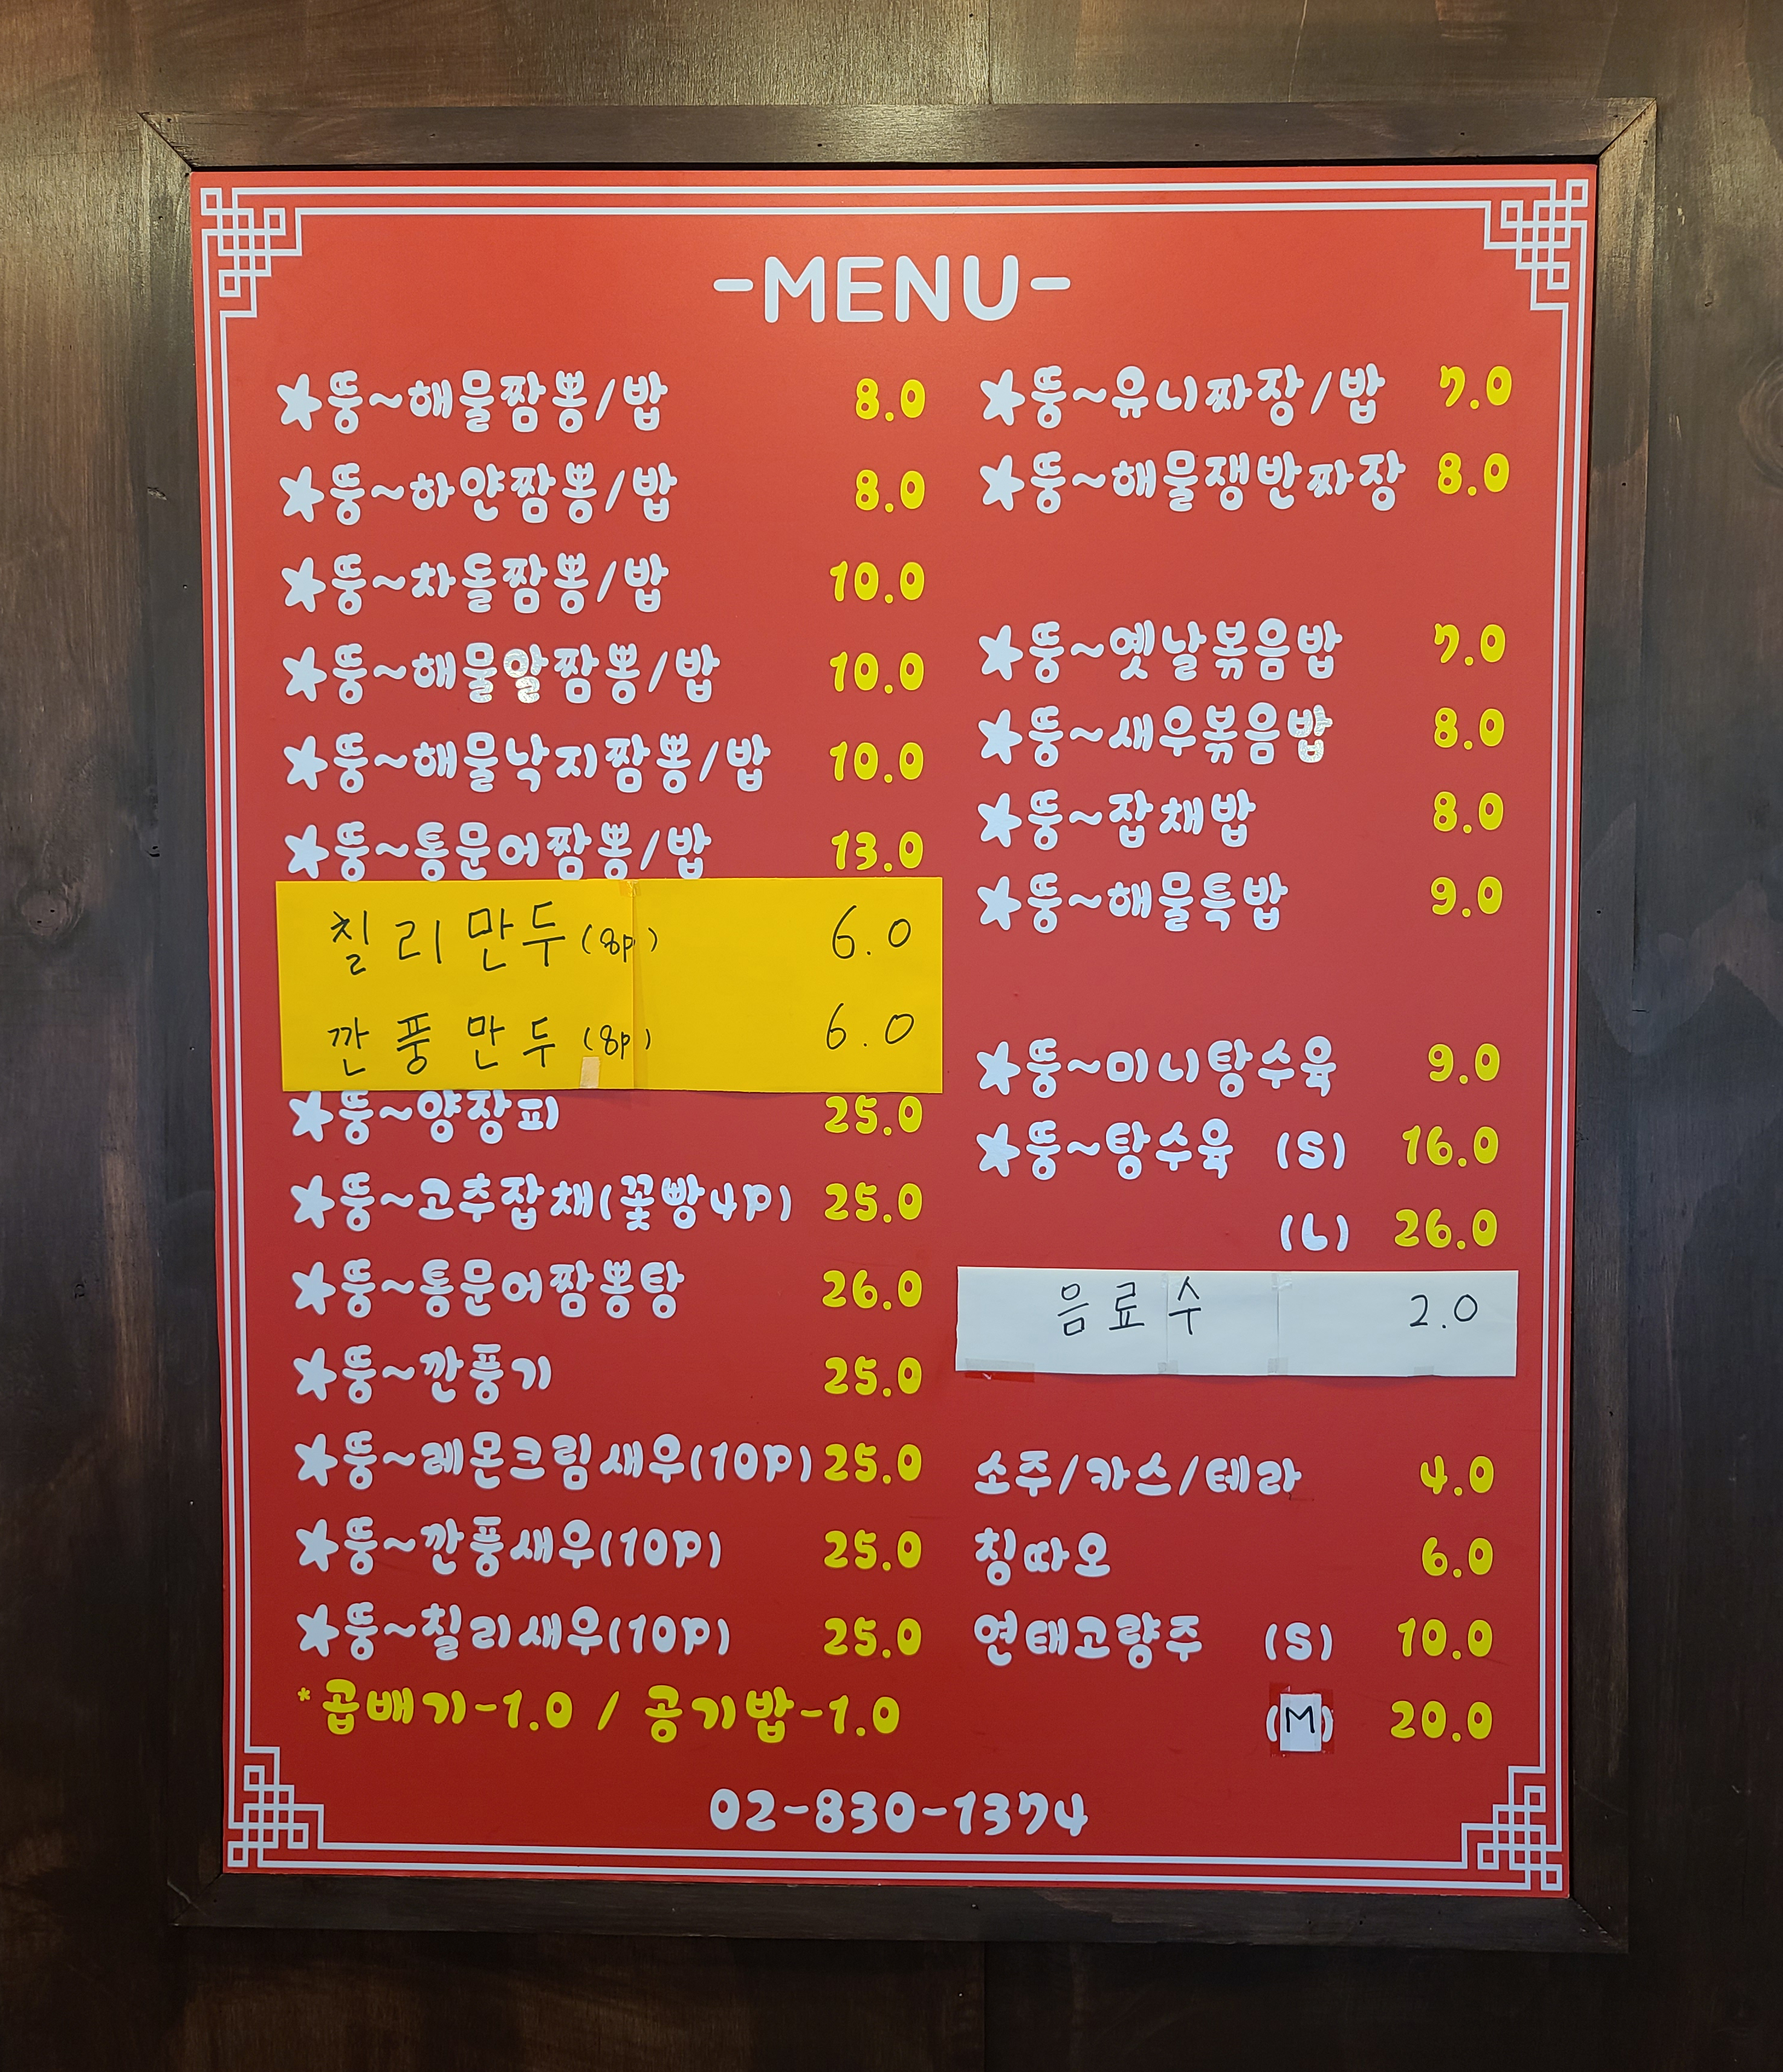 -MENU-
★뚱~해물짬뽕/밥 8.0
★뚱~하얀짬뽕/밥 8.0
★뚱~차돌짬뽕/밥 10.0
★뚱~해물알짬뽕/밥 10.0
★뚱~해물낙지짬뽕/밥 10.0
★뚱~통문어짬뽕/밥 13.0
칠리만두(8p) 6.0
깐풍만두(8p) 6.0
★뚱~양장피 25.0
★뚱~고추잡채(꽃빵4P) 25.0
★뚱~통문어짬뽕탕 26.0
★뚱~깐풍기 25.0
★뚱~레몬크림새우(10P) 25.0
★뚱~깐풍새우(10P) 25.0
★뚱~칠리새우(10P) 25.0
*곱배기-1.0 / 공기밥-1.0
★뚱~유니짜장/밥 7.0
★뚱~해물쟁반짜장 8.0
★뚱~옛날볶음밥 7.0
★뚱~새우볶음밥 8.0
★뚱~잡채밥 8.0
★뚱~해물특밥 9.0
★뚱~미니탕수육 9.0
★뚱~탕수육 (S) 16.0
(L) 26.0
음료수 2.0
소주/카스/테라 4.0
칭따오 6.0
연태고량주 (S) 10.0
(M) 20.0
02-830-1374